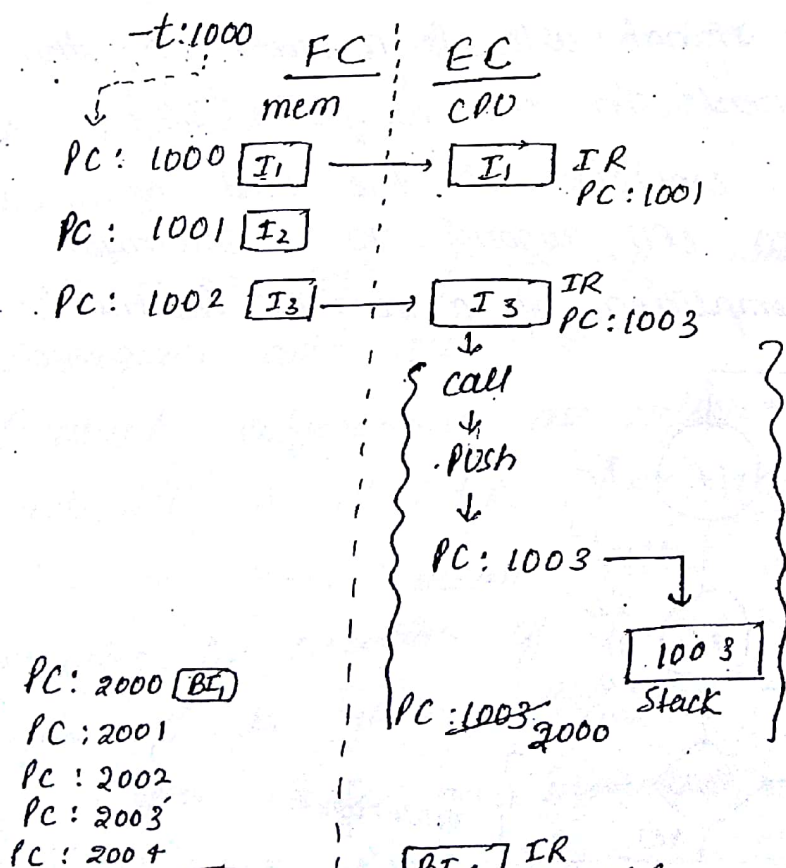 -t:1000
FC EC
mem CPU
PC: 1000 I1 I1 IR
PC: 1001
PC: 1001 I2
PC: 1002 I3 I3 IR
PC: 1003
call
PUSh
PC: 1003
1003
Stack
PC: 1003 2000
PC: 2000 BI1
PC: 2001
PC: 2002
PC: 2003
PC: 2004
IR